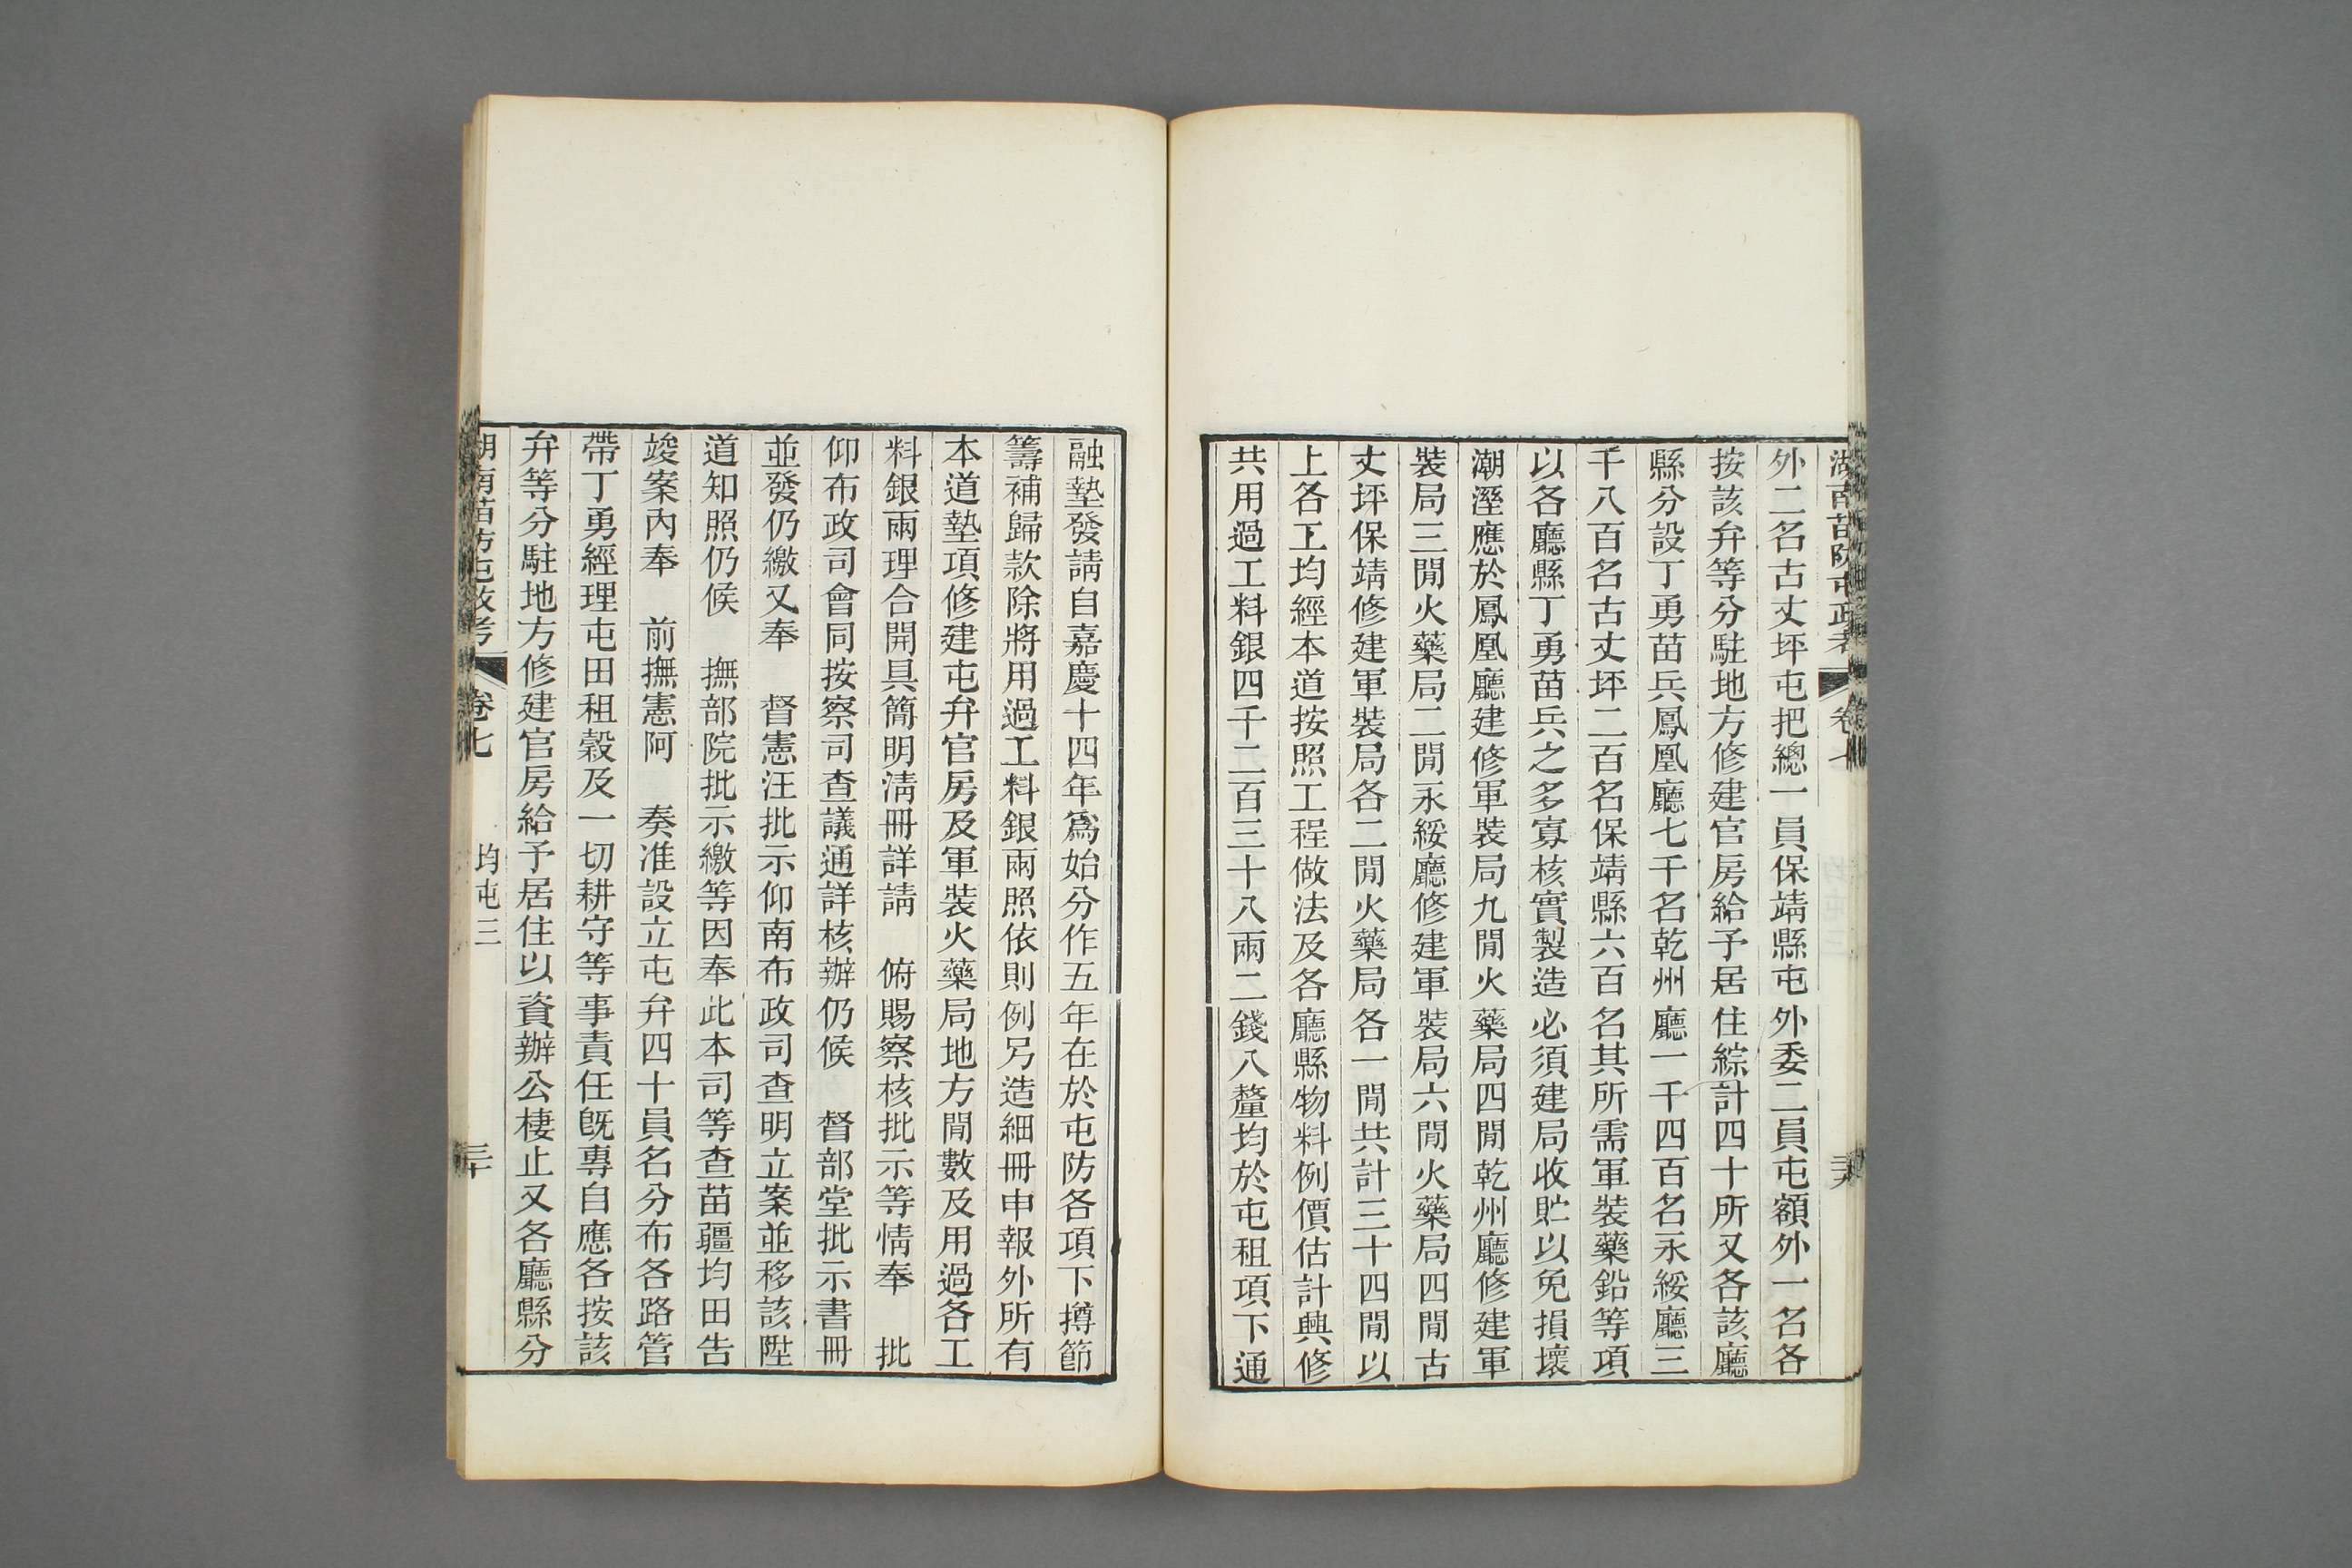 湖南苗防屯政考 卷七
外二名古丈坪屯把總一員保靖縣屯外委二員屯額外一名各
按該弁等分駐地方修建官房給予居住綜計四十所又各該廳
縣分設丁勇苗兵鳳凰廳七千名乾州廳一千四百名永綏廳三
千八百名古丈坪二百名保靖縣六百名其所需軍裝藥鉛等項
以各廳縣丁勇苗兵之多寡核實製造必須建局收貯以免損壞
潮溼應於鳳凰廳建修軍裝局九閒火藥局四閒乾州廳修建軍
裝局三閒火藥局二閒永綏廳修建軍裝局六閒火藥局四閒古
丈坪保靖修建軍裝局各二閒火藥局各一閒共計三十四閒以
上各工均經本道按照工程做法及各廳縣物料例價估計興修
共用過工料銀四千二百三十八兩二錢八釐均於屯租項下通
融墊發請自嘉慶十四年爲始分作五年在於屯防各項下撙節
籌補歸款除將用過工料銀兩照依則例另造細冊申報外所有
本道墊項修建屯弁官房及軍裝火藥局地方閒數及用過各工
料銀兩理合開具簡明清冊詳請 俯賜察核批示等情奉 批
仰布政司會同按察司查議通詳核辦仍候 督部堂批示書冊
並發仍繳又奉 督憲汪批示仰南布政司查明立案並移該陞
道知照仍候 撫部院批示繳等因奉此本司等查苗疆均田告
竣案內奉 前撫憲阿 奏准設立屯弁四十員名分布各路管
帶丁勇經理屯田租穀及一切耕守等事責任旣專自應各按該
弁等分駐地方修建官房給予居住以資辦公棲止又各廳縣分
湖南苗防屯政考 卷七 均屯三 三十